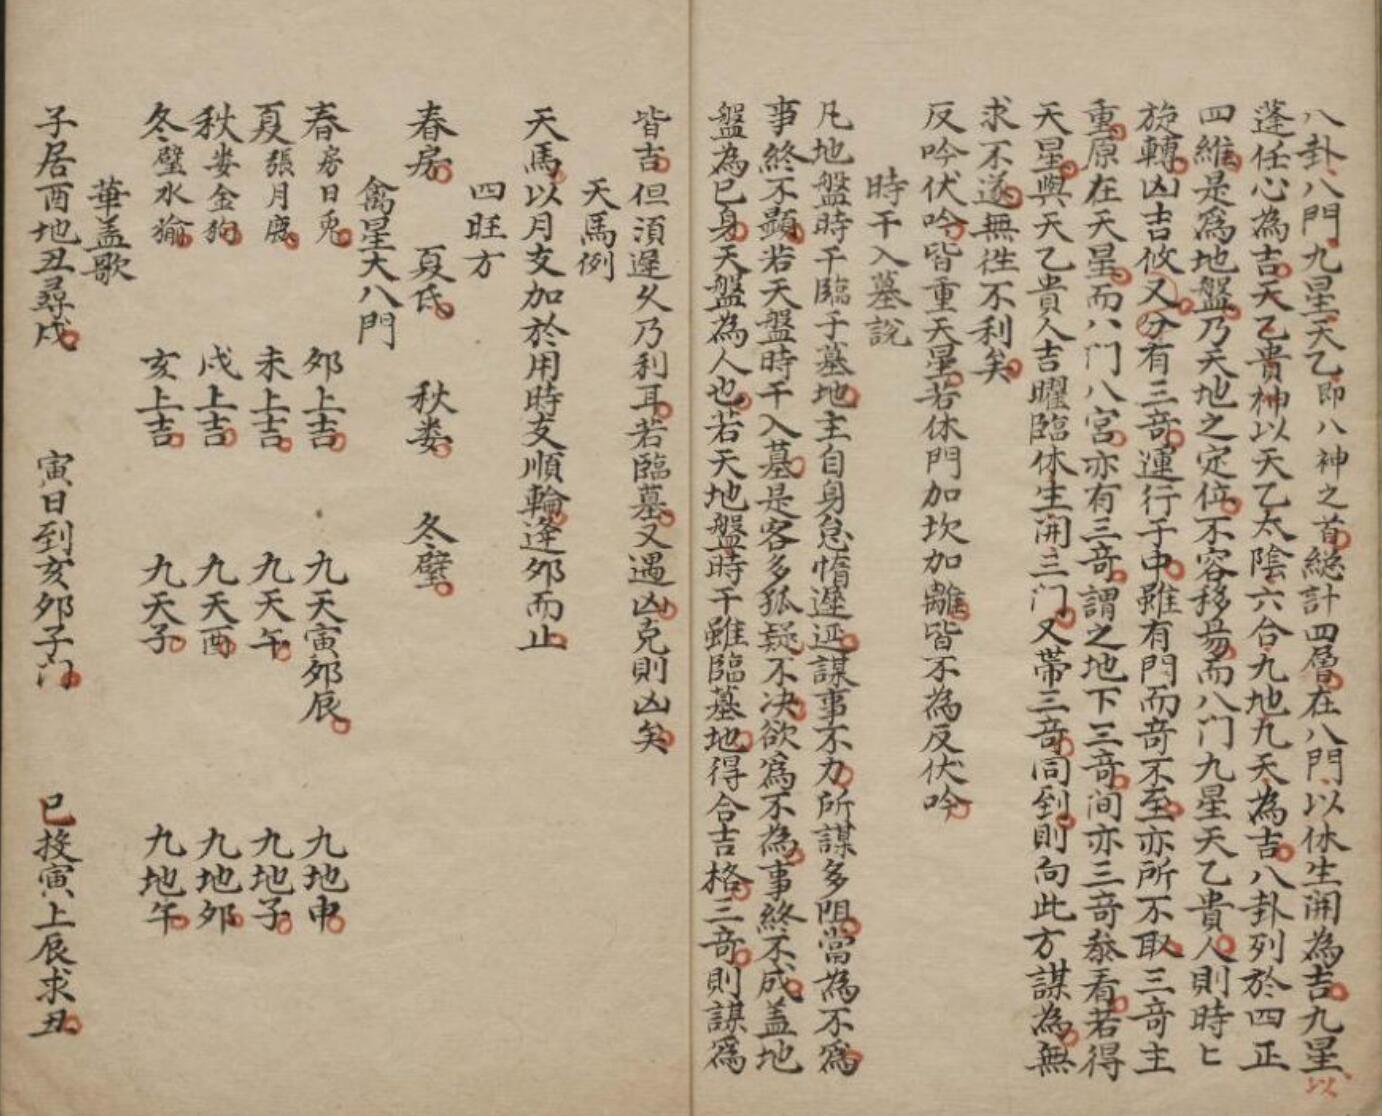 八卦八門九星天乙即八神之首總計四層在八門以休生開為吉九星以
蓬任心為吉天乙貴神以天乙太陰六合九地九天為吉八卦列於四正
四維是爲地盤乃天地之定位不容移易而八门九星天乙貴人則時匕
旋轉凶吉攸分又有三竒運行于中雖有門而竒不至亦所不取三竒主
重原在天星而八门八宮亦有三竒謂之地下三竒间亦三竒叅看若得
天星與天乙貴人吉曜臨休生開三门又帶三竒同到則向此方謀為無
求不遂無徃不利矣
反吟伏吟皆重天星若休門加坎加離皆不為反伏吟
時干入墓說
凡地盤時干臨于墓地主自身怠惰遲延謀事不力所謀多阻當為不爲
事終不顯若天盤時干入墓是客多狐疑不决欲爲不為事終不成盖地
盤為己身天盤為人也若天地盤時干雖臨墓地得合吉格三竒則謀爲
皆吉但須遲久乃利耳若臨墓又遇凶克則凶矣
天馬例
天馬以月支加於用時支順輪逢夘而止
四旺方
春房 夏氐 秋娄 冬壁
禽星大八門
春房日兎 夘上吉 九天寅夘辰 九地申
夏張月鹿 未上吉 九天午 九地子
秋娄金狗 戌上吉 九天酉 九地夘
冬壁水㺄 亥上吉 九天子 九地午
華盖歌
子居酉地丑尋戌 寅日到亥夘子门 巳投寅上辰求丑